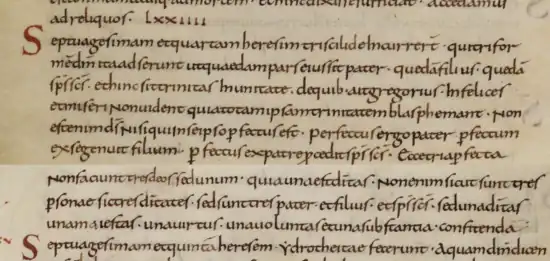 ad reliquos · lxxiiii
Septuagesimam et quartam heresim triscilidę incurrer̄t · qui trifor
mē dm̄ ita adserunt ut quaedam pars eius sit pater · quedā filius · quedā
sp̄s sc̄s · et hinc sit trinitas in unitate · de quib · ait gregorius · Infelices
et miseri non uident quia totam ipsam trinitatem blasphemant · Non
est enim ds̄ nisi qui in se ipso ꝑfectus est · Perfectus ergo pater ꝑfectum
ex se genuit filium · ꝑfectus ex patre ꝓcedit sp̄s sc̄s · Ecce tria ꝑfecta
non faciunt tres deos sed unum · quia una est ditas · Non enim sicut sunt tres
ꝑsonae sic tres ditates · sed sunt tres pater · et filius · et sp̄s sc̄s · sed una ditas
una maiestas · una uirtus · una uoluntas et una substantia · confitenda
Septuagesimam et quintā heresem · ydrotheitae fecerunt · Aquam dm̄ dicen